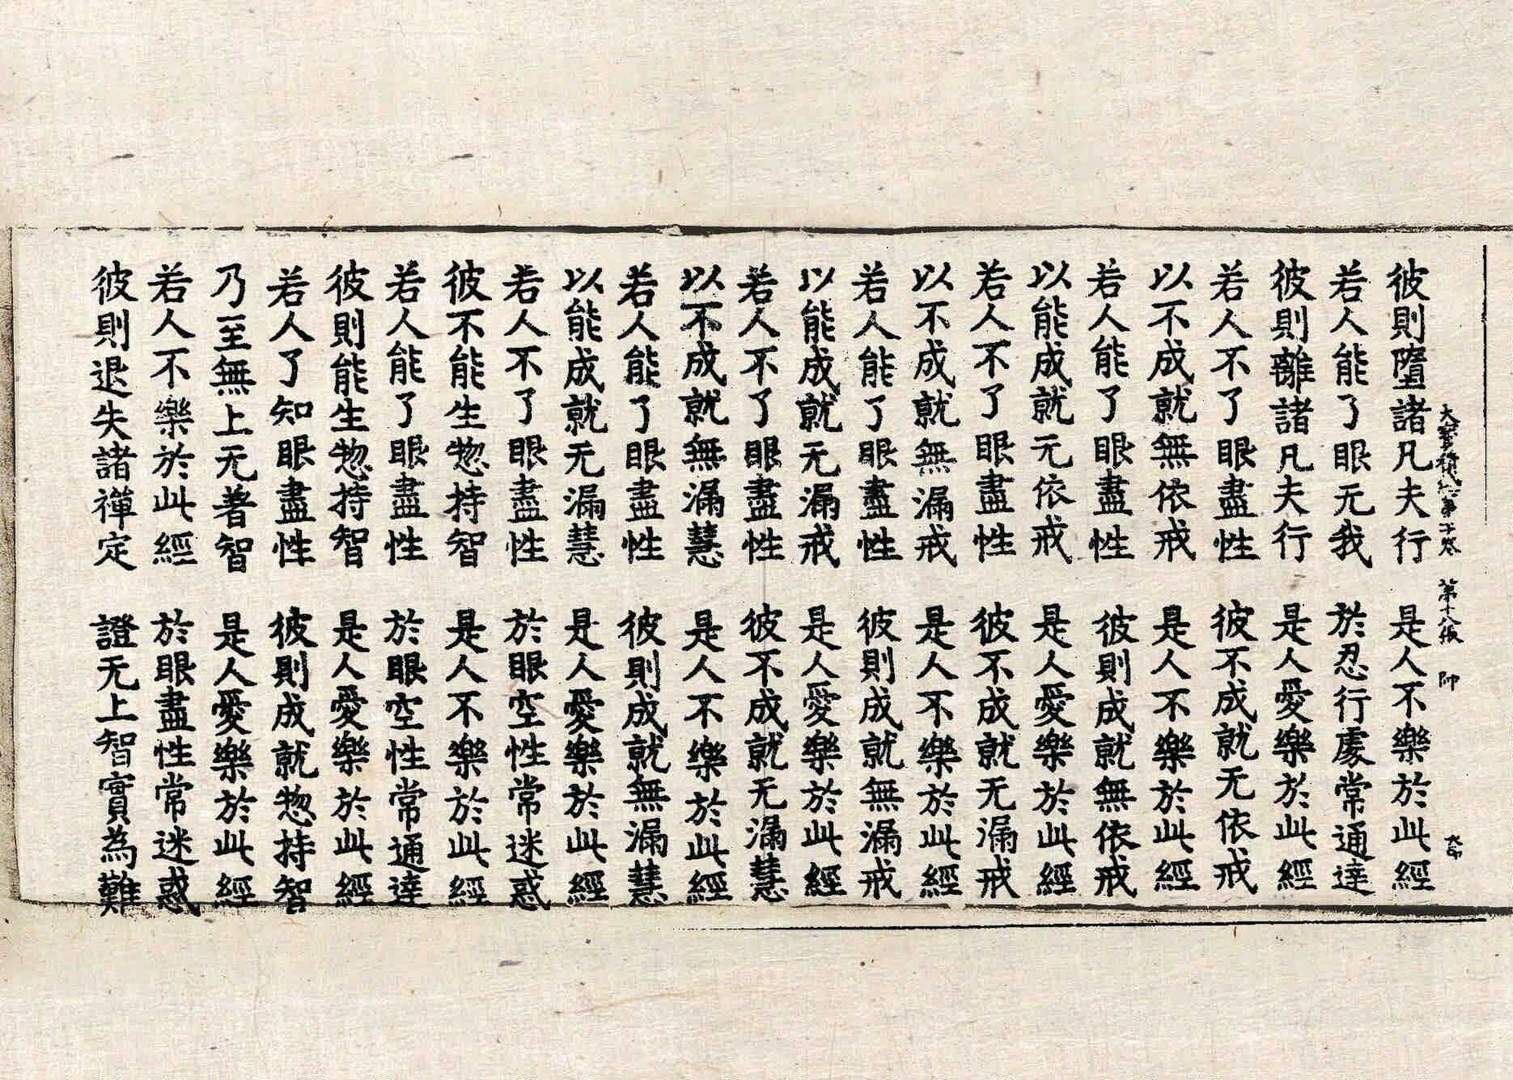 彼則墮諸凡夫行 是人不樂於此經
大寶積經第十卷 第十八張 帥
若人能了眼无我 於忍行處常通達
彼則離諸凡夫行 是人愛樂於此經
若人不了眼盡性 彼不成就无依戒
以不成就無依戒 是人不樂於此經
若人能了眼盡性 彼則成就無依戒
以能成就无依戒 是人愛樂於此經
若人不了眼盡性 彼不成就无漏戒
以不成就無漏戒 是人不樂於此經
若人能了眼盡性 彼則成就無漏戒
以能成就无漏戒 是人愛樂於此經
若人不了眼盡性 彼不成就无漏慧
以不成就無漏慧 是人不樂於此經
若人能了眼盡性 彼則成就無漏慧
以能成就无漏慧 是人愛樂於此經
若人不了眼盡性 於眼空性常迷惑
彼不能生惣持智 是人不樂於此經
若人能了眼盡性 於眼空性常通達
彼則能生惣持智 是人愛樂於此經
若人了知眼盡性 彼則成就惣持智
乃至無上无著智 是人愛樂於此經
若人不樂於此經 於眼盡性常迷惑
彼則退失諸禪定 證无上智實為難